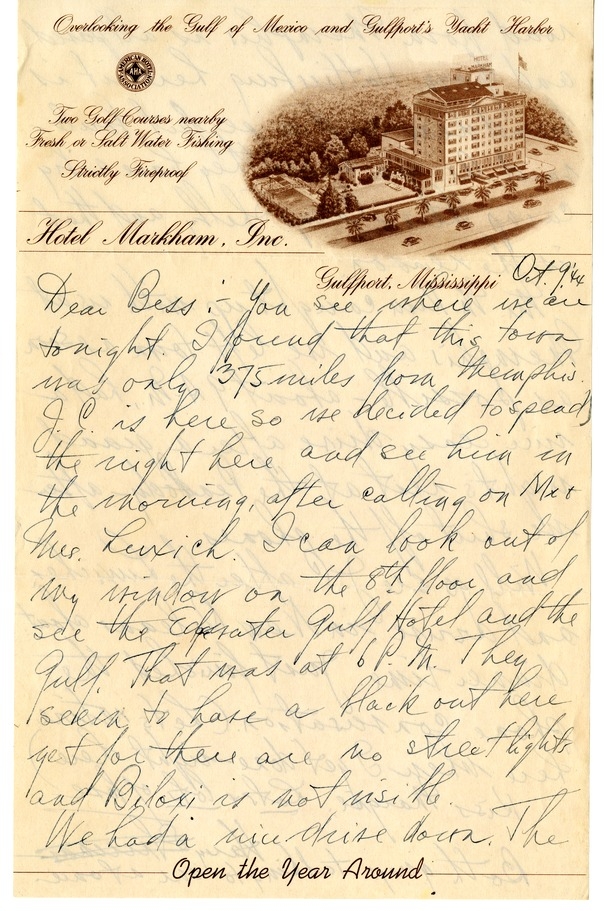 Overlooking the Gulf of Mexico and Gulfport's Yacht Harbor
AMERICAN HOTEL
AHA
ASSOCIATION
HOTEL
MARKHAM
Two Golf Courses nearby
Fresh or Salt Water Fishing
Strictly Fireproof
Hotel Markham, Inc.
Gulfport, Mississippi Oct. 9, '44
Dear Bess:- You see where we are
tonight. I found that this town
was only 375 miles from Memphis.
J.C. is here so we decided to spend
the night here and see him in
the morning, after calling on Mr +
Mrs. Luxich. I can look out of
my window on the 8th floor and
see the Edgewater Gulf Hotel and the
Gulf. That was at 6 P.M. They
seem to have a black out here
yet for there are no street lights
and Biloxi is not visible.
We had a nice drive down. The
Open the Year Around